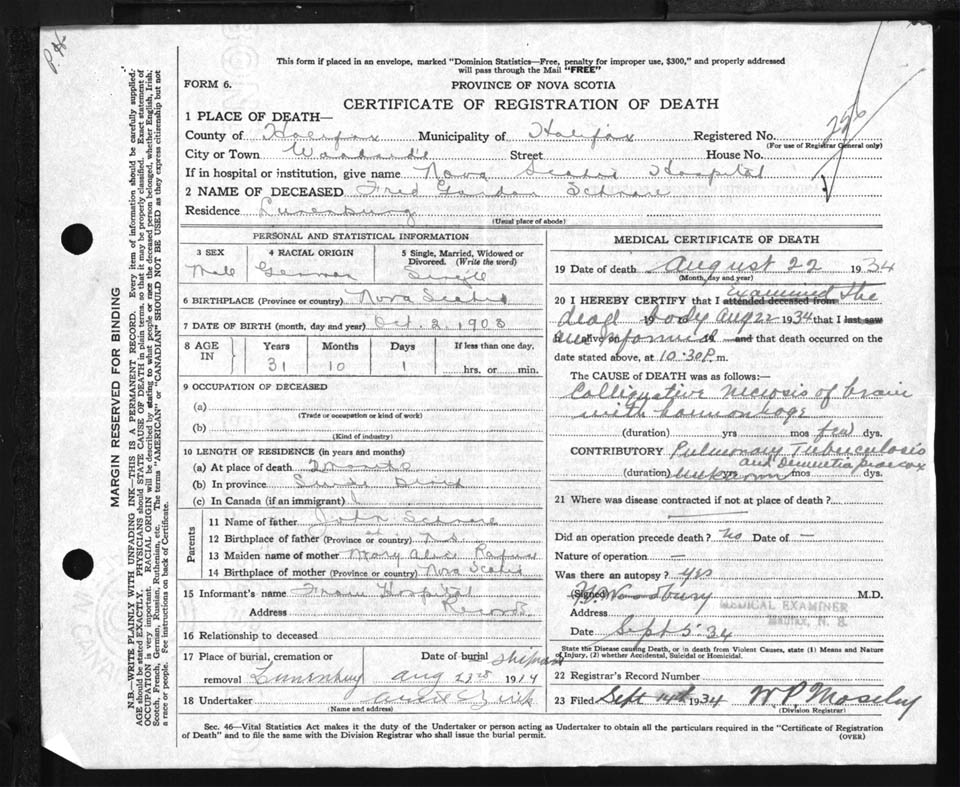 P.H.
This form if placed in an envelope, marked "Dominion Statistics—Free, penalty for improper use, $300," and properly addressed
will pass through the Mail "FREE"
FORM 6.
PROVINCE OF NOVA SCOTIA
CERTIFICATE OF REGISTRATION OF DEATH
1 PLACE OF DEATH—
County of Halifax Municipality of Halifax Registered No.
(For use of Registrar General only)
City or Town Woodside Street House No.
If in hospital or institution, give name Nova Scotia Hospital
2 NAME OF DECEASED Fred Gordon Schnare
Residence Lunenburg
(Usual place of abode)
PERSONAL AND STATISTICAL INFORMATION
3 SEX 4 RACIAL ORIGIN 5 Single, Married, Widowed or
Divorced. (Write the word)
Male German Single
6 BIRTHPLACE (Province or country) Nova Scotia
7 DATE OF BIRTH (month, day and year) Oct. 2. 1903
8 AGE IN Years Months Days If less than one day,
31 10 1 hrs. or min.
9 OCCUPATION OF DECEASED
(a)
(Trade or occupation or kind of work)
(b)
(Kind of industry)
10 LENGTH OF RESIDENCE (in years and months)
(a) At place of death 2 months
(b) In province Since Birth
(c) In Canada (if an immigrant)
Parents
11 Name of father John Schnare
12 Birthplace of father (Province or country) N.S.
13 Maiden name of mother Mary Alice
14 Birthplace of mother (Province or country) Nova Scotia
15 Informant's name From Hospital
Address Records
16 Relationship to deceased
17 Place of burial, cremation or Date of burial
removal Lunenburg Aug 23rd 19
18 Undertaker
(Name and address)
MEDICAL CERTIFICATE OF DEATH
19 Date of death August 22 1934
(Month, day and year)
20 I HEREBY CERTIFY that I attended deceased from examined the
dead body Aug 22 1934 that I last saw
alive on am informed and that death occurred on the
date stated above, at 10:30 P.m.
The CAUSE of DEATH was as follows:—
Colliquative necrosis of brain
with haemorrhage
(duration) yrs mos few dys.
CONTRIBUTORY Pulmonary Tuberculosis
and Dementia praecox
(duration) unknown yrs mos dys.
21 Where was disease contracted if not at place of death?
Did an operation precede death? no Date of —
Nature of operation —
Was there an autopsy? yes
(Signed) M.D.
Address MEDICAL EXAMINER
HALIFAX, N. S.
Date Sept 5 '34
State the Disease causing Death, or in death from Violent Causes, state (1) Means and Nature
of Injury, (2) whether Accidental, Suicidal or Homicidal.
22 Registrar's Record Number
23 Filed Sept 14th 1934 W.P. Moseley
(Division Registrar)
Sec. 46—Vital Statistics Act makes it the duty of the Undertaker or person acting as Undertaker to obtain all the particulars required in the "Certificate of Registration
of Death" and to file the same with the Division Registrar who shall issue the burial permit.
(OVER)
MARGIN RESERVED FOR BINDING
N.B.—WRITE PLAINLY WITH UNFADING INK—THIS IS A PERMANENT RECORD. Every item of information should be carefully supplied.
AGE should be stated EXACTLY. PHYSICIANS should STATE CAUSE OF DEATH in plain terms, so that it may be properly classified. Exact statement of
OCCUPATION is very important. RACIAL ORIGIN will be described by stating to what people or race the deceased person belonged, whether English, Irish,
Scotch, French, German, Russian, Ruthenian, etc. The terms "AMERICAN" or "CANADIAN" SHOULD NOT BE USED as they express citizenship but not
a race or people. Fee instructions on back of Certificate.